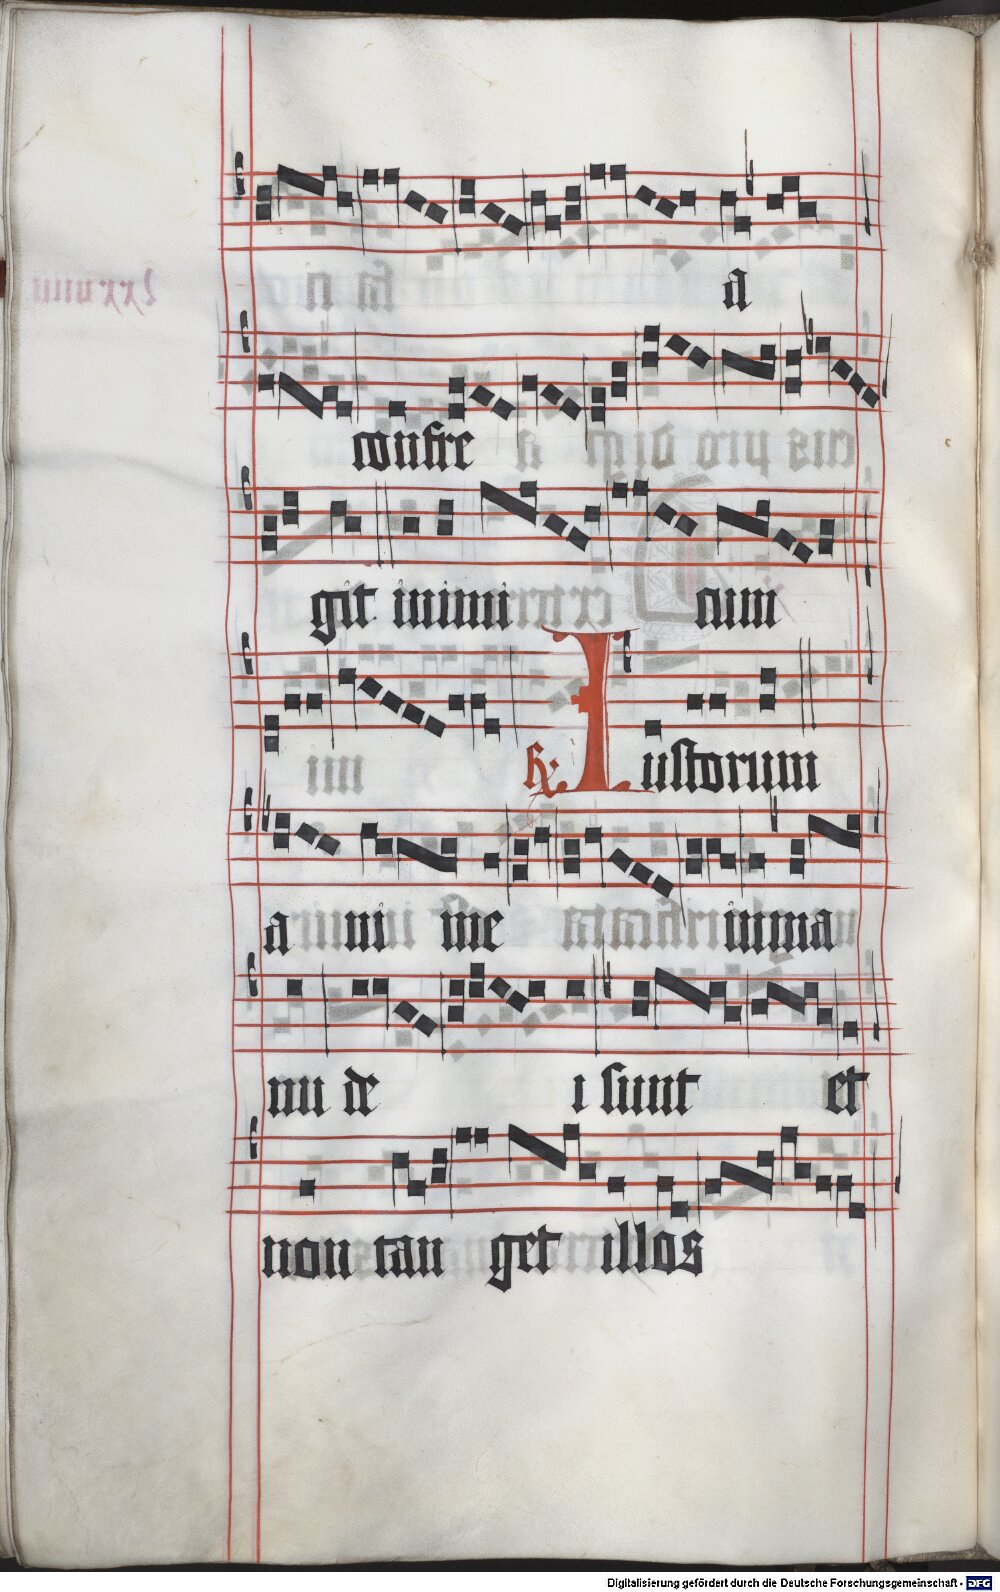 a
confre
git inimi cum
℟ Iustorum
a ni me inma
nu de i sunt et
non tan get illos
Digitalisierung gefördert durch die Deutsche Forschungsgemeinschaft - DFG